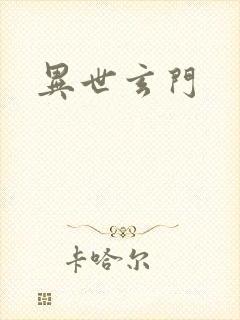 異世玄門
卡哈尔